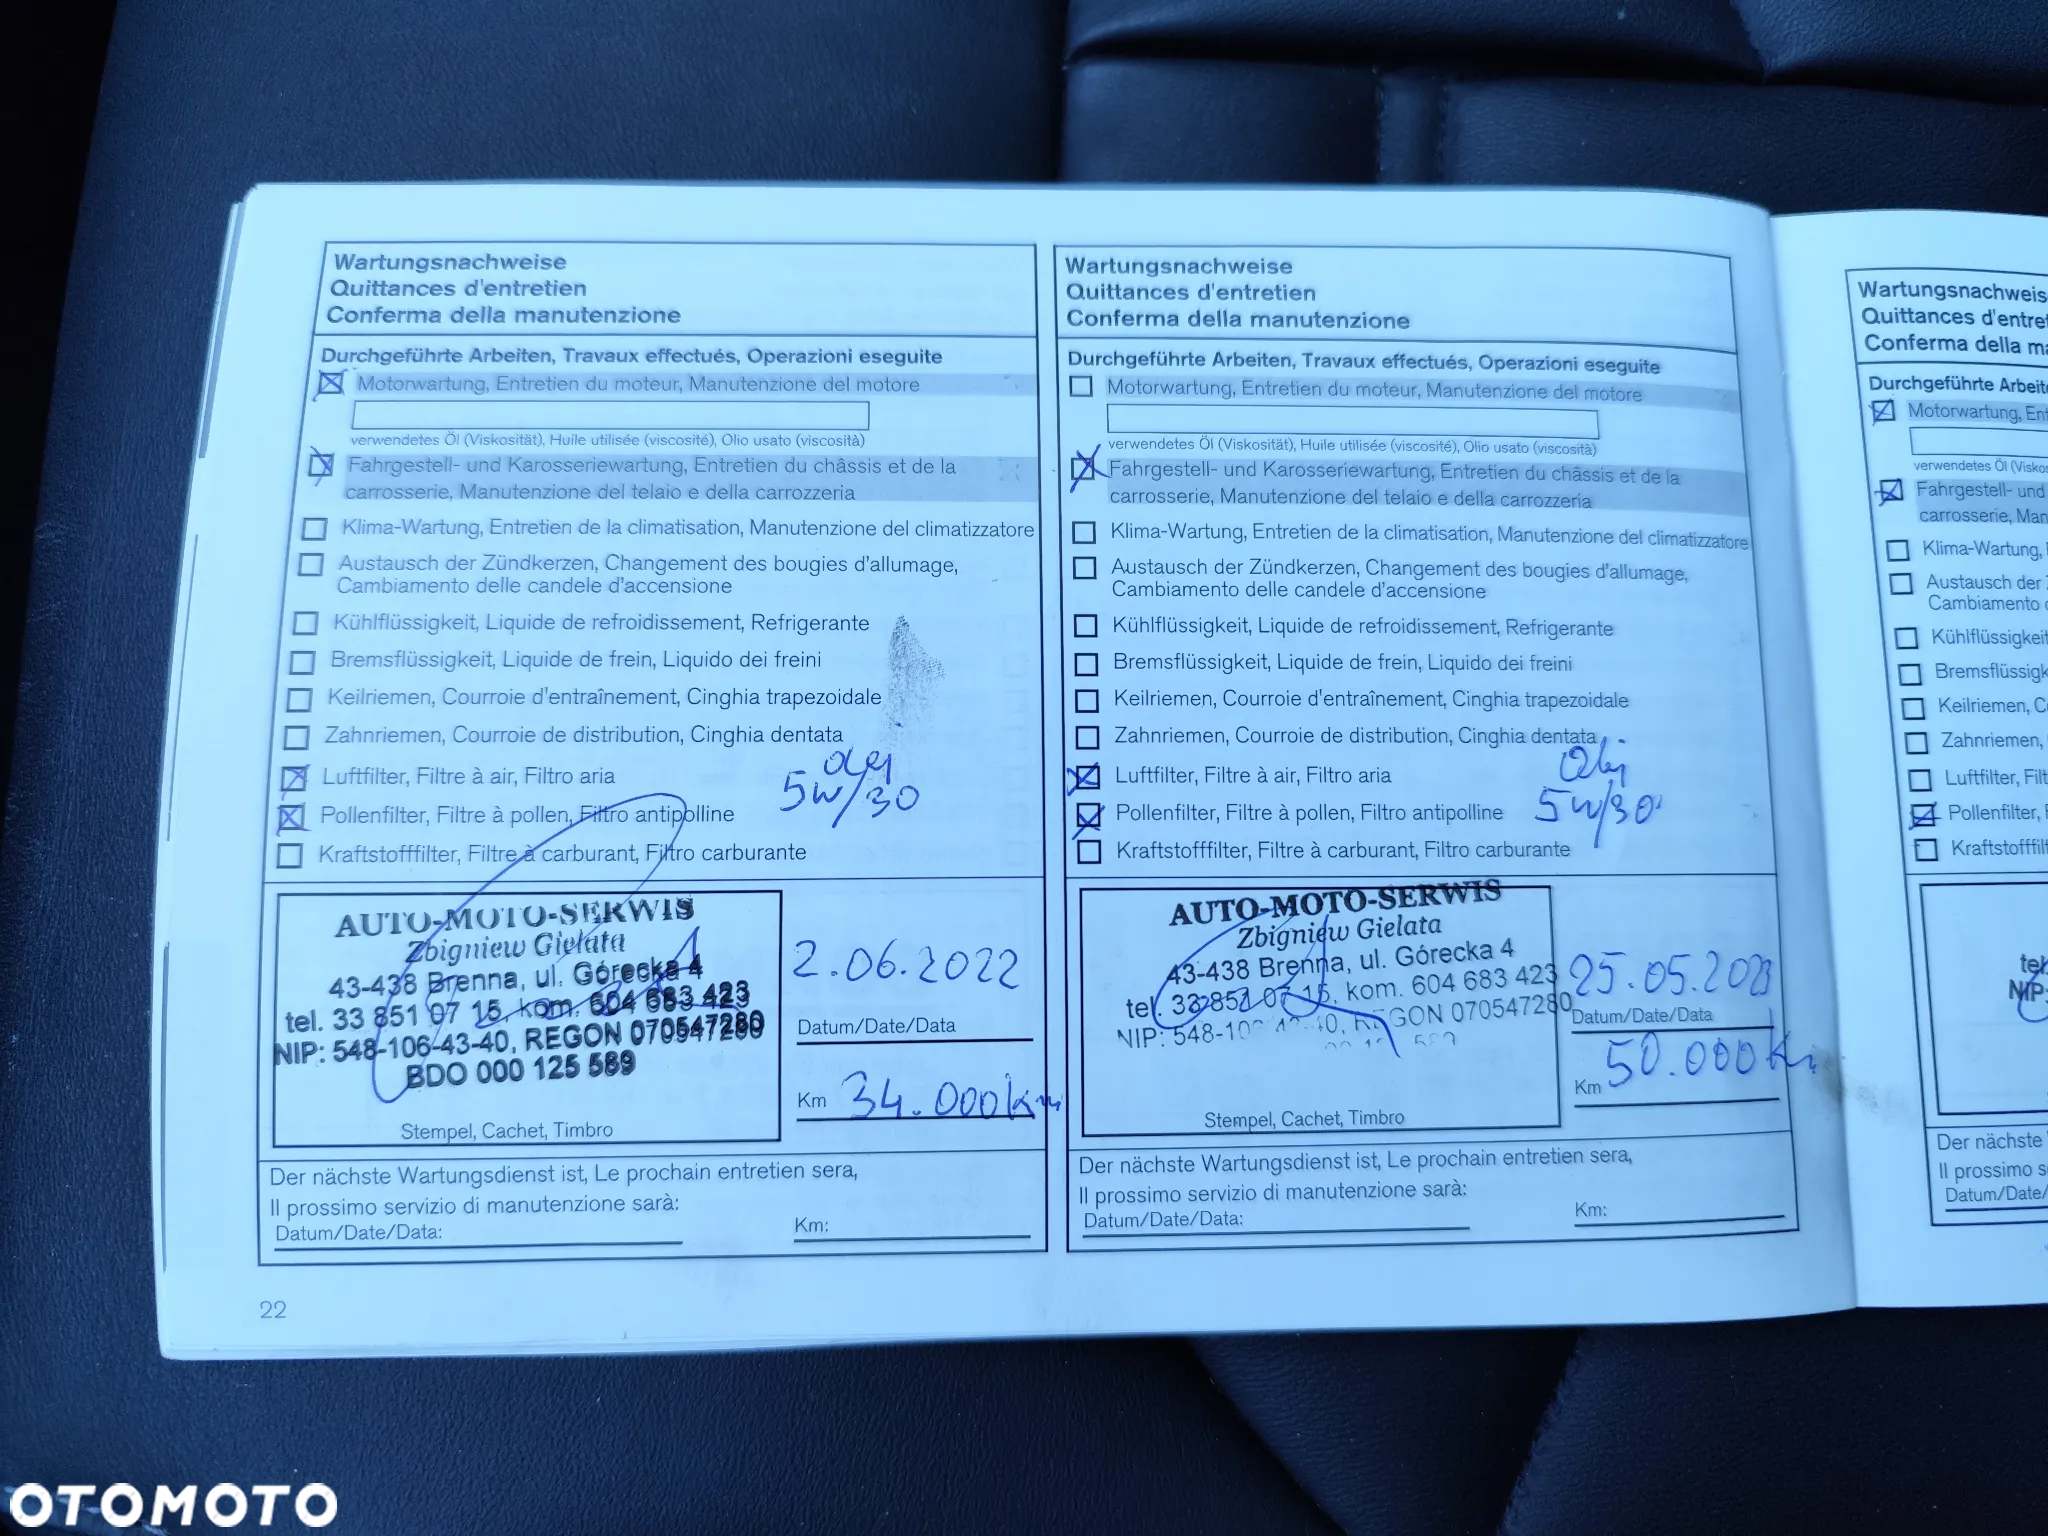 Wartungsnachweise
Quittances d'entretien
Conferma della manutenzione
Durchgeführte Arbeiten, Travaux effectués, Operazioni eseguite
Motorwartung, Entretien du moteur, Manutenzione del motore
verwendetes Öl (Viskosität), Huile utilisée (viscosité), Olio usato (viscosità)
Fahrgestell- und Karosseriewartung, Entretien du châssis et de la
carrosserie, Manutenzione del telaio e della carrozzeria
Klima-Wartung, Entretien de la climatisation, Manutenzione del climatizzatore
Austausch der Zündkerzen, Changement des bougies d'allumage,
Cambiamento delle candele d'accensione
Kühlflüssigkeit, Liquide de refroidissement, Refrigerante
Bremsflüssigkeit, Liquide de frein, Liquido dei freini
Keilriemen, Courroie d'entraînement, Cinghia trapezoidale
Zahnriemen, Courroie de distribution, Cinghia dentata
olej
Luftfilter, Filtre à air, Filtro aria
5w/30
Pollenfilter, Filtre à pollen, Filtro antipolline
Kraftstofffilter, Filtre à carburant, Filtro carburante
AUTO-MOTO-SERWIS
Zbigniew Gielata
43-438 Brenna, ul. Górecka 4
tel. 33 851 07 15, kom. 604 683 423
NIP: 548-106-43-40, REGON 070547280
BDO 000 125 589
Stempel, Cachet, Timbro
2.06.2022
Datum/Date/Data
Km 34.000km
Der nächste Wartungsdienst ist, Le prochain entretien sera,
Il prossimo servizio di manutenzione sarà:
Datum/Date/Data:
Km:
22
Wartungsnachweise
Quittances d'entretien
Conferma della manutenzione
Durchgeführte Arbeiten, Travaux effectués, Operazioni eseguite
Motorwartung, Entretien du moteur, Manutenzione del motore
verwendetes Öl (Viskosität), Huile utilisée (viscosité), Olio usato (viscosità)
Fahrgestell- und Karosseriewartung, Entretien du châssis et de la
carrosserie, Manutenzione del telaio e della carrozzeria
Klima-Wartung, Entretien de la climatisation, Manutenzione del climatizzatore
Austausch der Zündkerzen, Changement des bougies d'allumage,
Cambiamento delle candele d'accensione
Kühlflüssigkeit, Liquide de refroidissement, Refrigerante
Bremsflüssigkeit, Liquide de frein, Liquido dei freini
Keilriemen, Courroie d'entraînement, Cinghia trapezoidale
Zahnriemen, Courroie de distribution, Cinghia dentata
Olej
Luftfilter, Filtre à air, Filtro aria
5w/30
Pollenfilter, Filtre à pollen, Filtro antipolline
Kraftstofffilter, Filtre à carburant, Filtro carburante
AUTO-MOTO-SERWIS
Zbigniew Gielata
43-438 Brenna, ul. Górecka 4
tel. 33 851 07 15, kom. 604 683 423
REGON 070547280
Stempel, Cachet, Timbro
25.05.2023
Datum/Date/Data
Km 50.000km
Der nächste Wartungsdienst ist, Le prochain entretien sera,
Il prossimo servizio di manutenzione sarà:
Datum/Date/Data:
Km:
Wartungsnachweis
Quittances d'entre
Conferma della ma
Durchgeführte Arbeit
Motorwartung, Ent
verwendetes Öl (Visko
Fahrgestell- und
carrosserie, Man
Klima-Wartung,
Austausch der
Cambiamento
Kühlflüssigkeit
Bremsflüssigk
Keilriemen, C
Zahnriemen,
Luftfilter, Filt
Pollenfilter,
Kraftstofffilt
tel.
NIP:
Der nächste
Il prossimo s
Datum/Date/
OTOMOTO